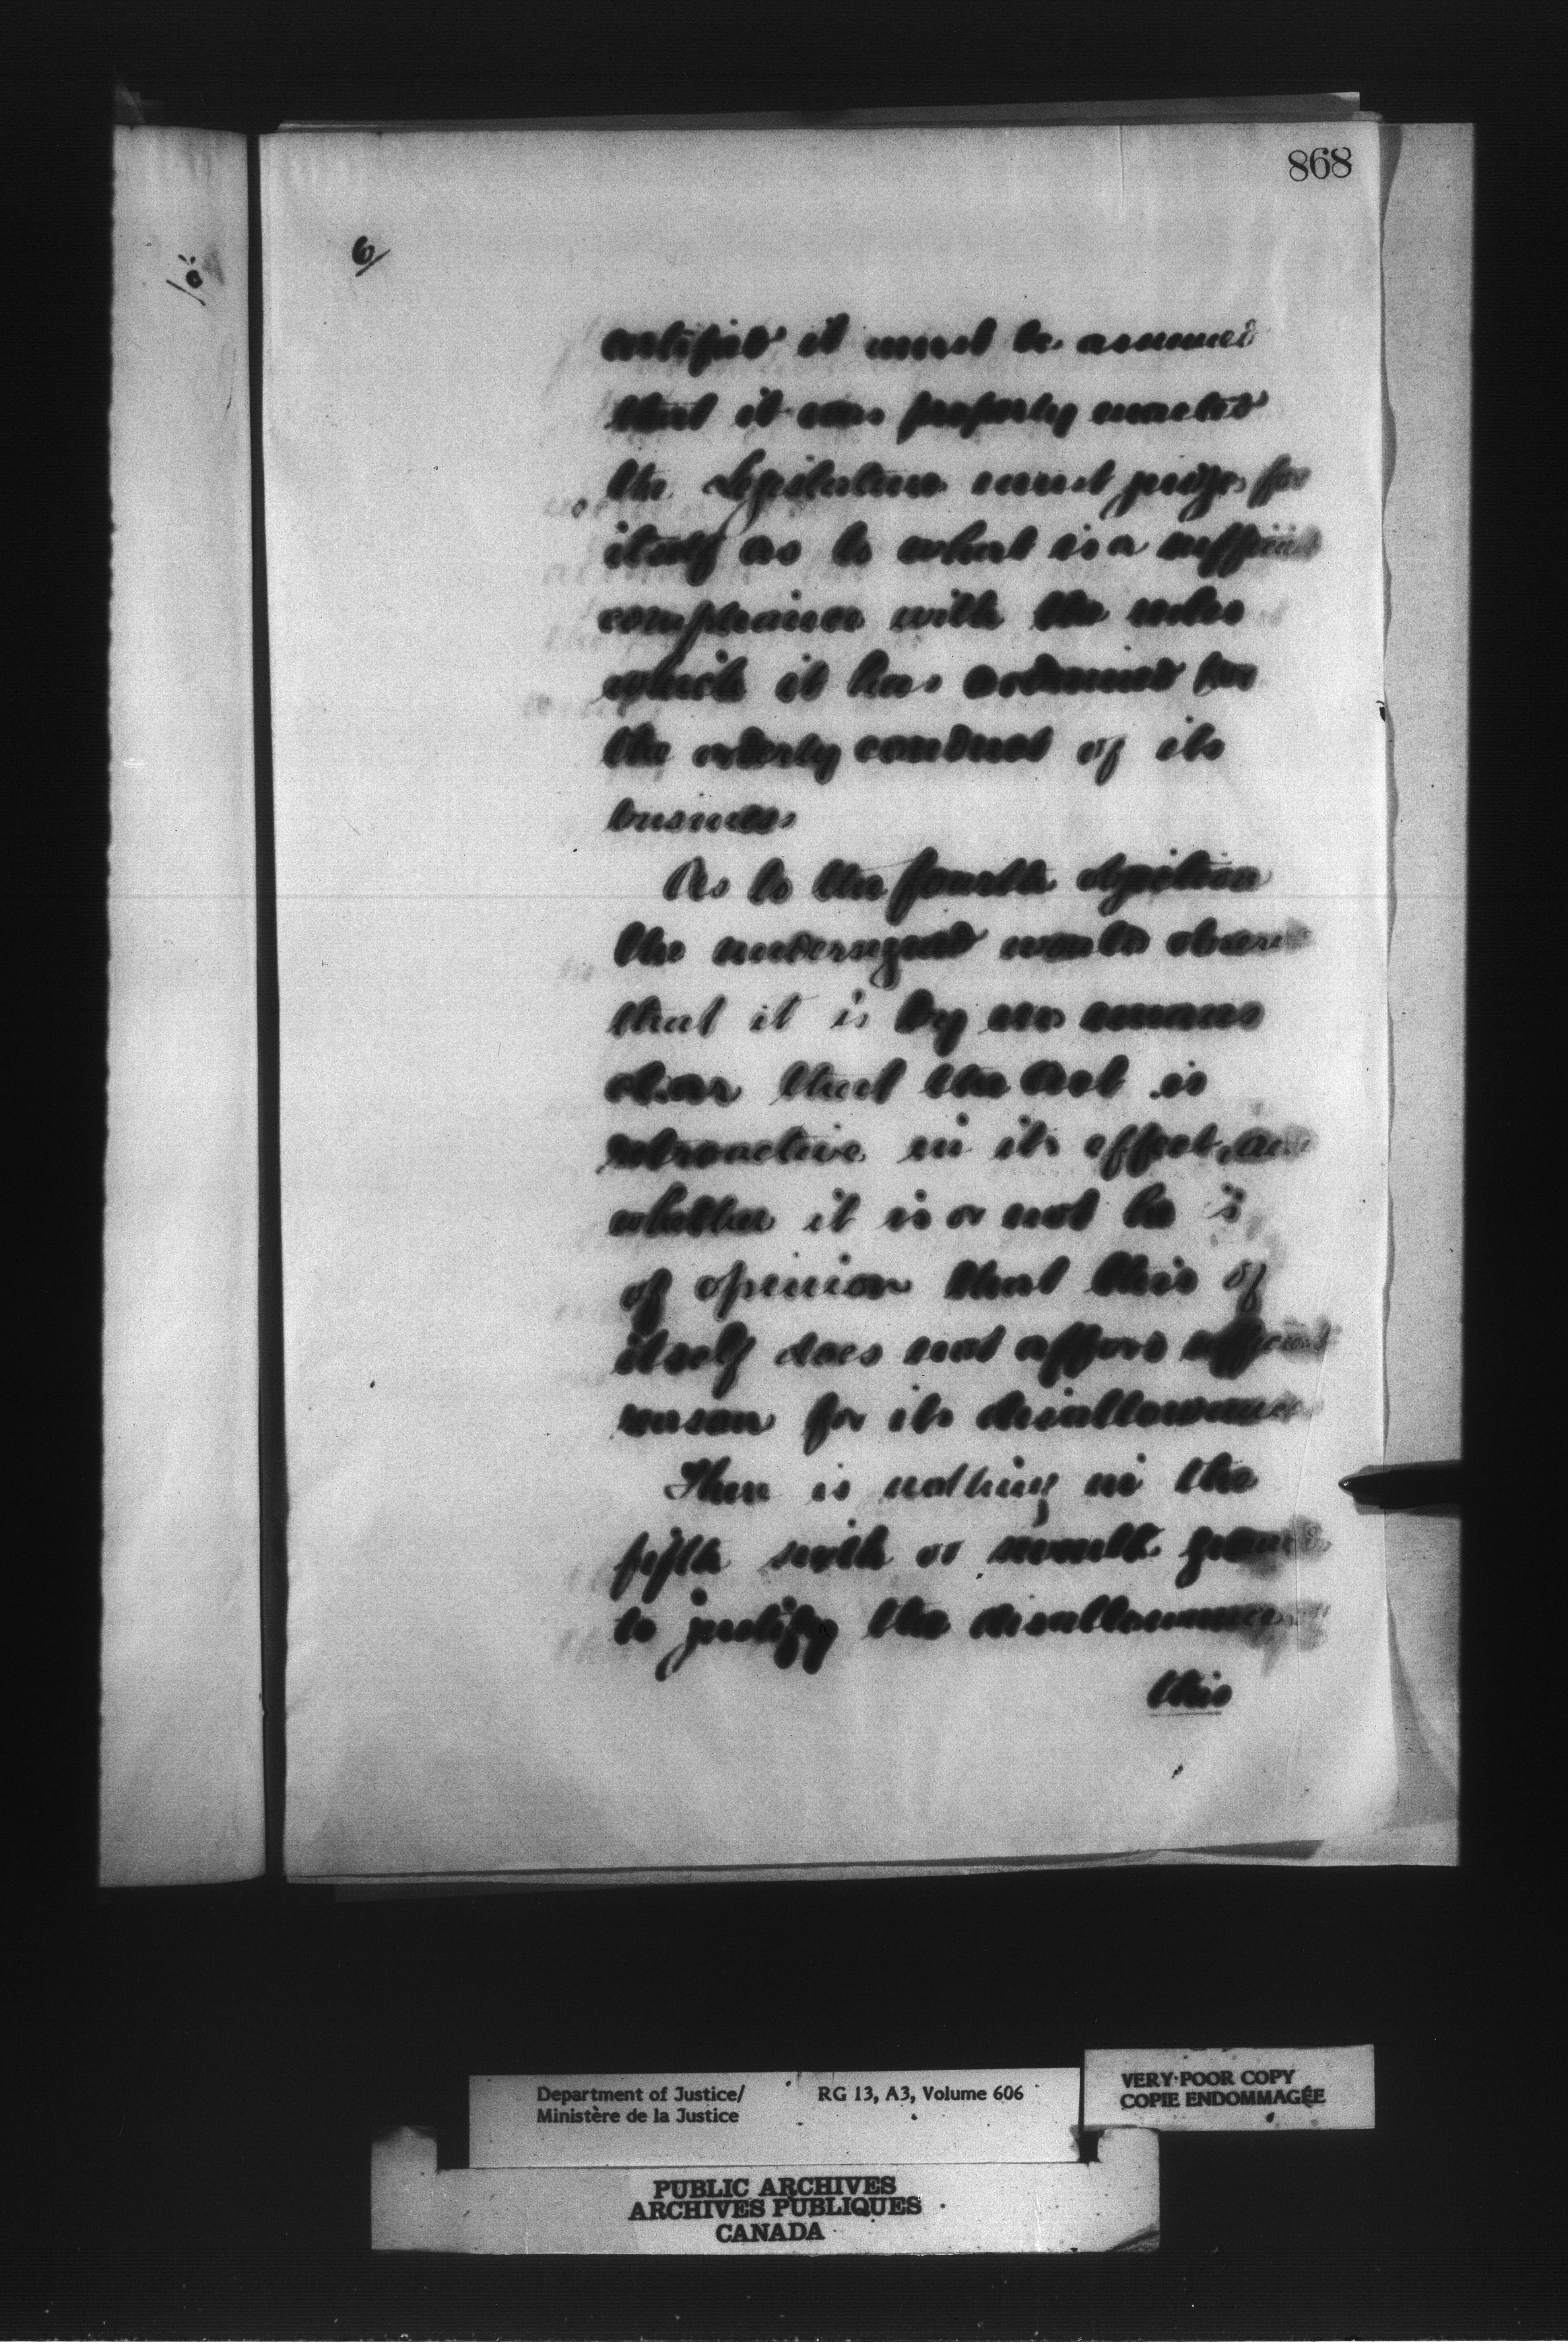 868
6/
certified it must be assumed
that it was properly enacted
the Legislature must judge for
itself as to what is a sufficient
compliance with the rules
which it has ordained for
the orderly conduct of its
business
As to the fourth objection
the undersigned would observe
that it is by no means
clear that the Act is
retroactive in its effect, and
whether it is or not he is
of opinion that this of
itself does not afford sufficient
reason for its disallowance
There is nothing in the
fifth sixth or seventh grounds
to justify the disallowance of
this
Department of Justice/ RG 13, A3, Volume 606
Ministère de la Justice
VERY POOR COPY
COPIE ENDOMMAGÉE
PUBLIC ARCHIVES
ARCHIVES PUBLIQUES
CANADA